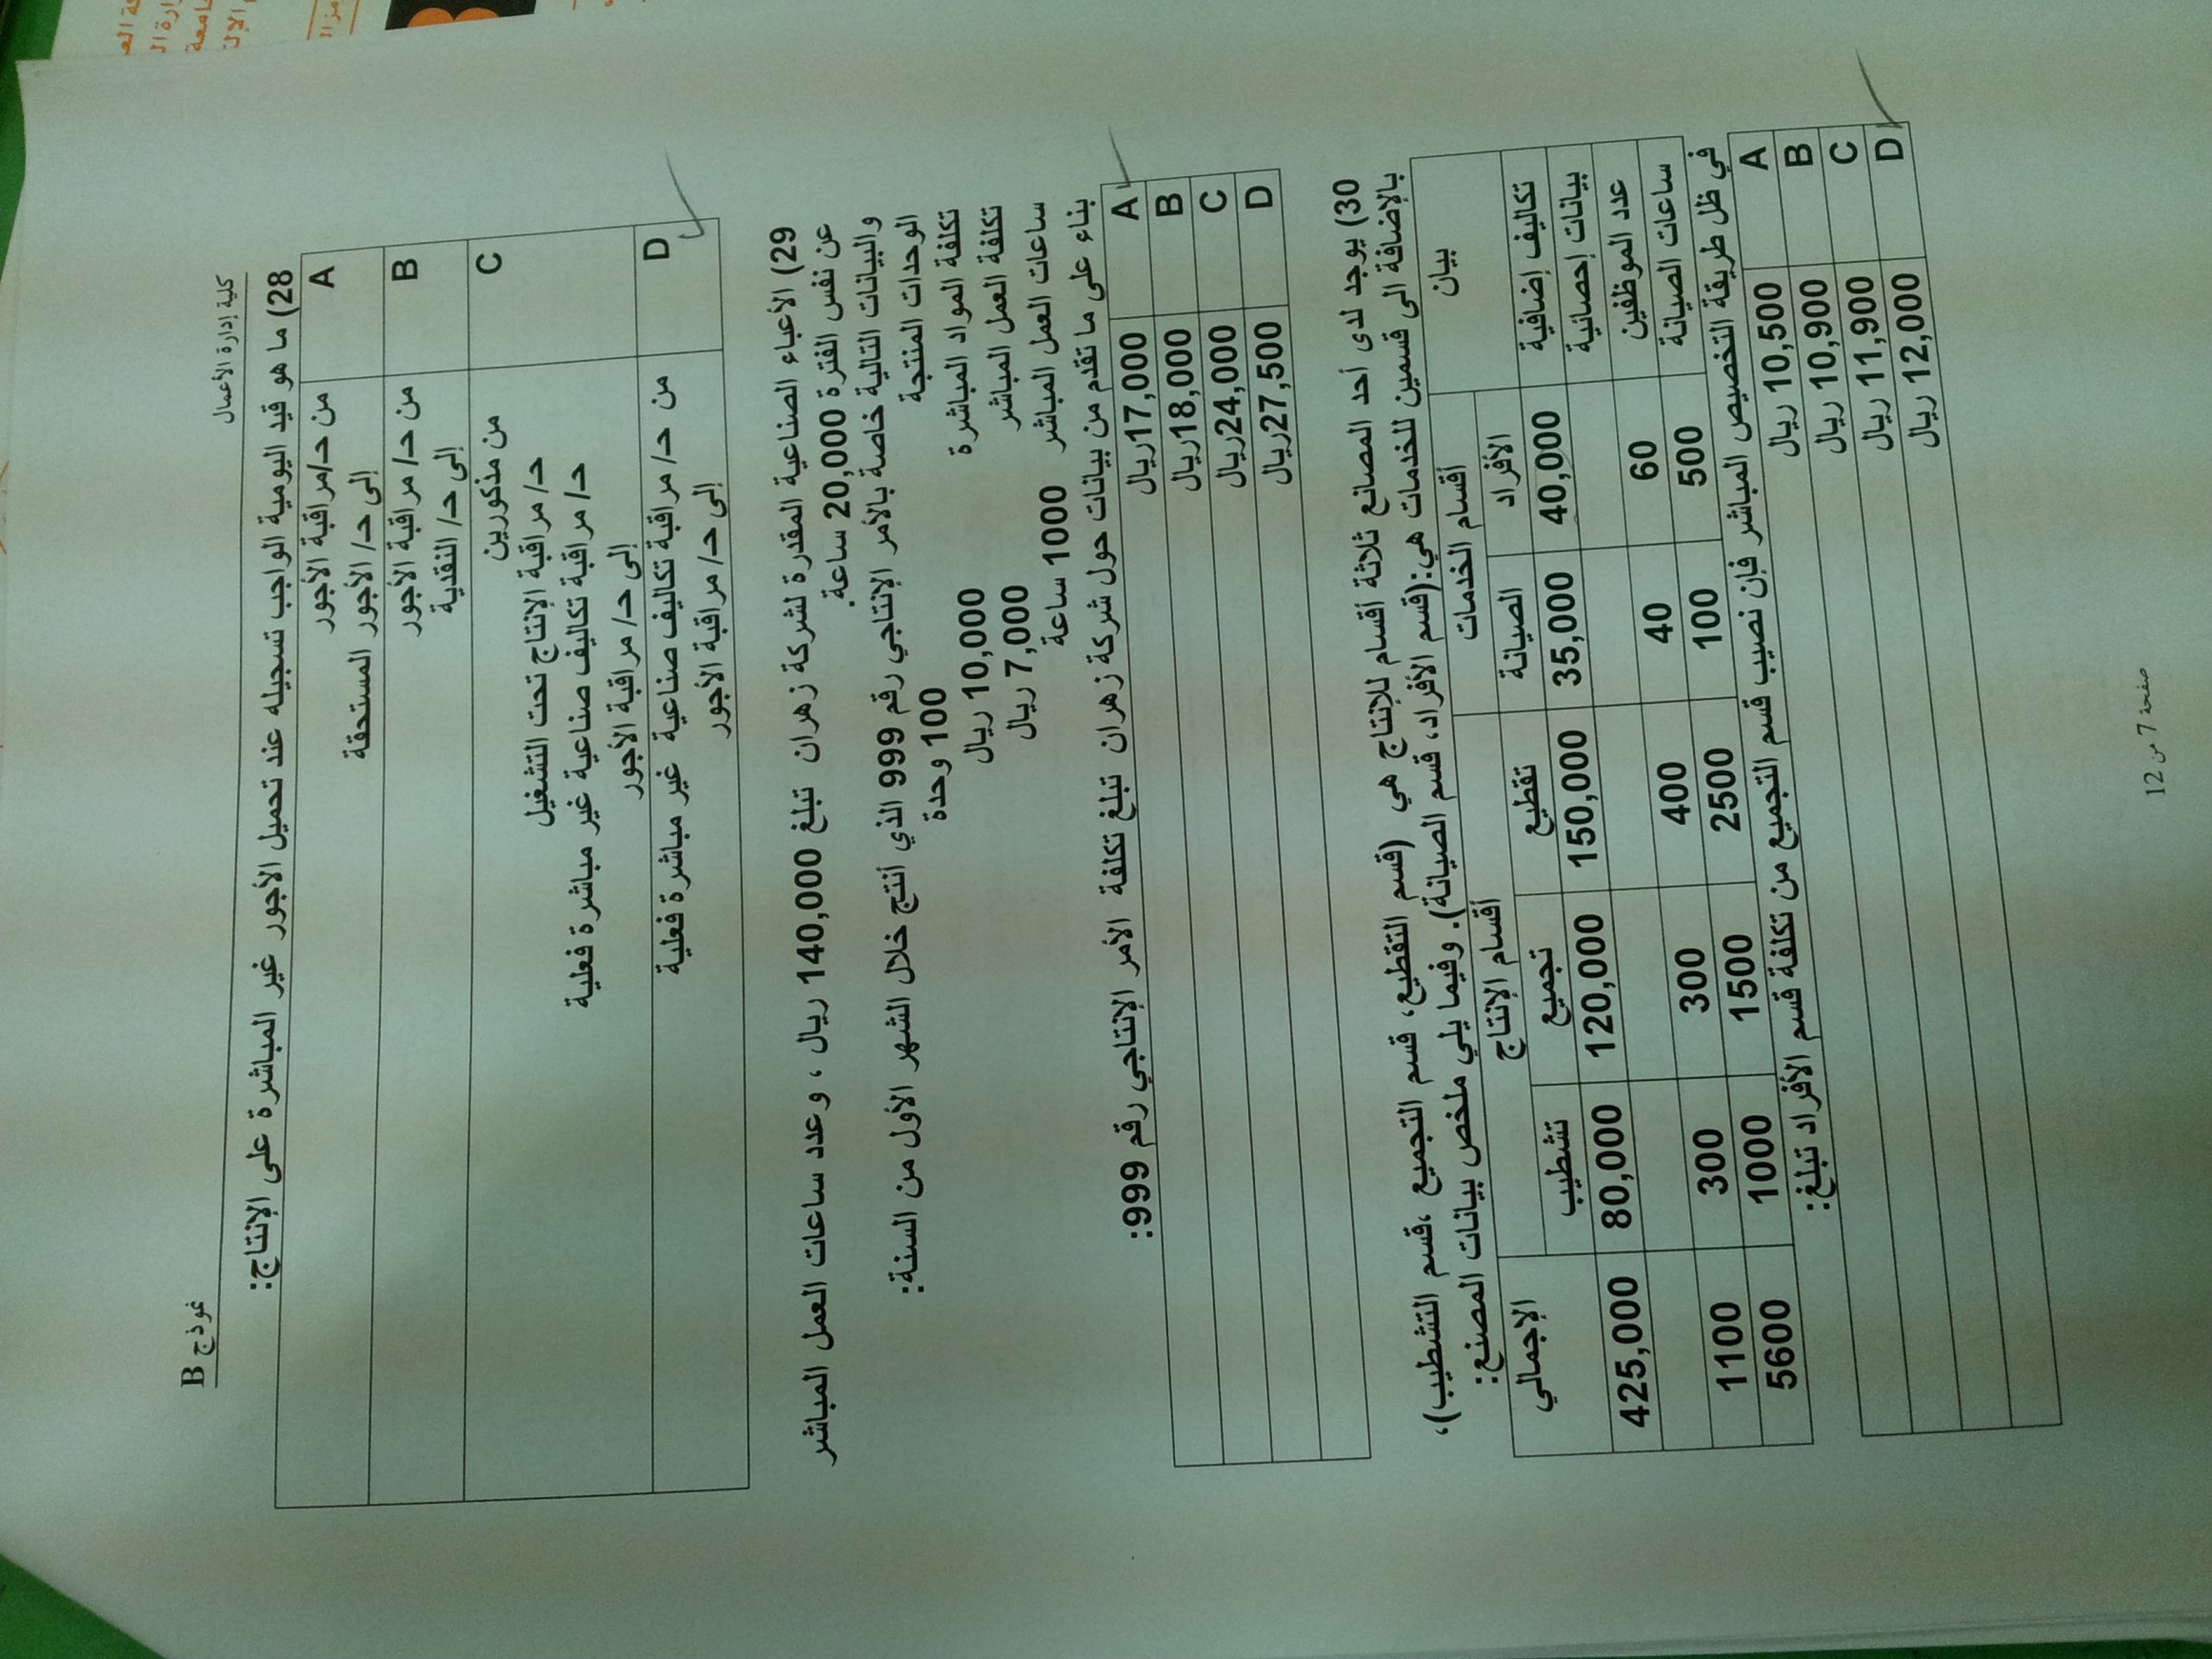 كلية إدارة الأعمال
نموذج B
28) ما هو قيد اليومية الواجب تسجيله عند تحميل الأجور غير المباشرة على الإنتاج:
A
من حـ/مراقبة الأجور
إلى حـ/ الأجور المستحقة
B
من حـ/ مراقبة الأجور
إلى حـ/ النقدية
C
من مذكورين
حـ/ مراقبة الإنتاج تحت التشغيل
حـ/ مراقبة تكاليف صناعية غير مباشرة فعلية
إلى حـ/ مراقبة الأجور
D
من حـ/ مراقبة تكاليف صناعية غير مباشرة فعلية
إلى حـ/ مراقبة الأجور
29) الأعباء الصناعية المقدرة لشركة زهران تبلغ 140,000 ريال ، وعدد ساعات العمل المباشر
عن نفس الفترة 20,000 ساعة.
والبيانات التالية خاصة بالأمر الإنتاجي رقم 999 الذي أنتج خلال الشهر الأول من السنة:
الوحدات المنتجة 100 وحدة
تكلفة المواد المباشرة 10,000 ريال
تكلفة العمل المباشر 7,000 ريال
ساعات العمل المباشر 1000 ساعة
بناء على ما تقدم من بيانات حول شركة زهران تبلغ تكلفة الأمر الإنتاجي رقم 999:
A 17,000ريال
B 18,000ريال
C 24,000ريال
D 27,500ريال
30) يوجد لدى أحد المصانع ثلاثة أقسام للإنتاج هي (قسم التقطيع، قسم التجميع ،قسم التشطيب)،
بالإضافة الى قسمين للخدمات هي:(قسم الأفراد، قسم الصيانة). وفيما يلي ملخص بيانات المصنع:
بيان أقسام الخدمات أقسام الإنتاج الإجمالي
الأفراد الصيانة تقطيع تجميع تشطيب
تكاليف إضافية 40,000 35,000 150,000 120,000 80,000 425,000
بيانات إحصائية
عدد الموظفين 60 40 400 300 300 1100
ساعات الصيانة 500 100 2500 1500 1000 5600
في ظل طريقة التخصيص المباشر فإن نصيب قسم التجميع من تكلفة قسم الأفراد تبلغ:
A 10,500 ريال
B 10,900 ريال
C 11,900 ريال
D 12,000 ريال
صفحة 7 من 12